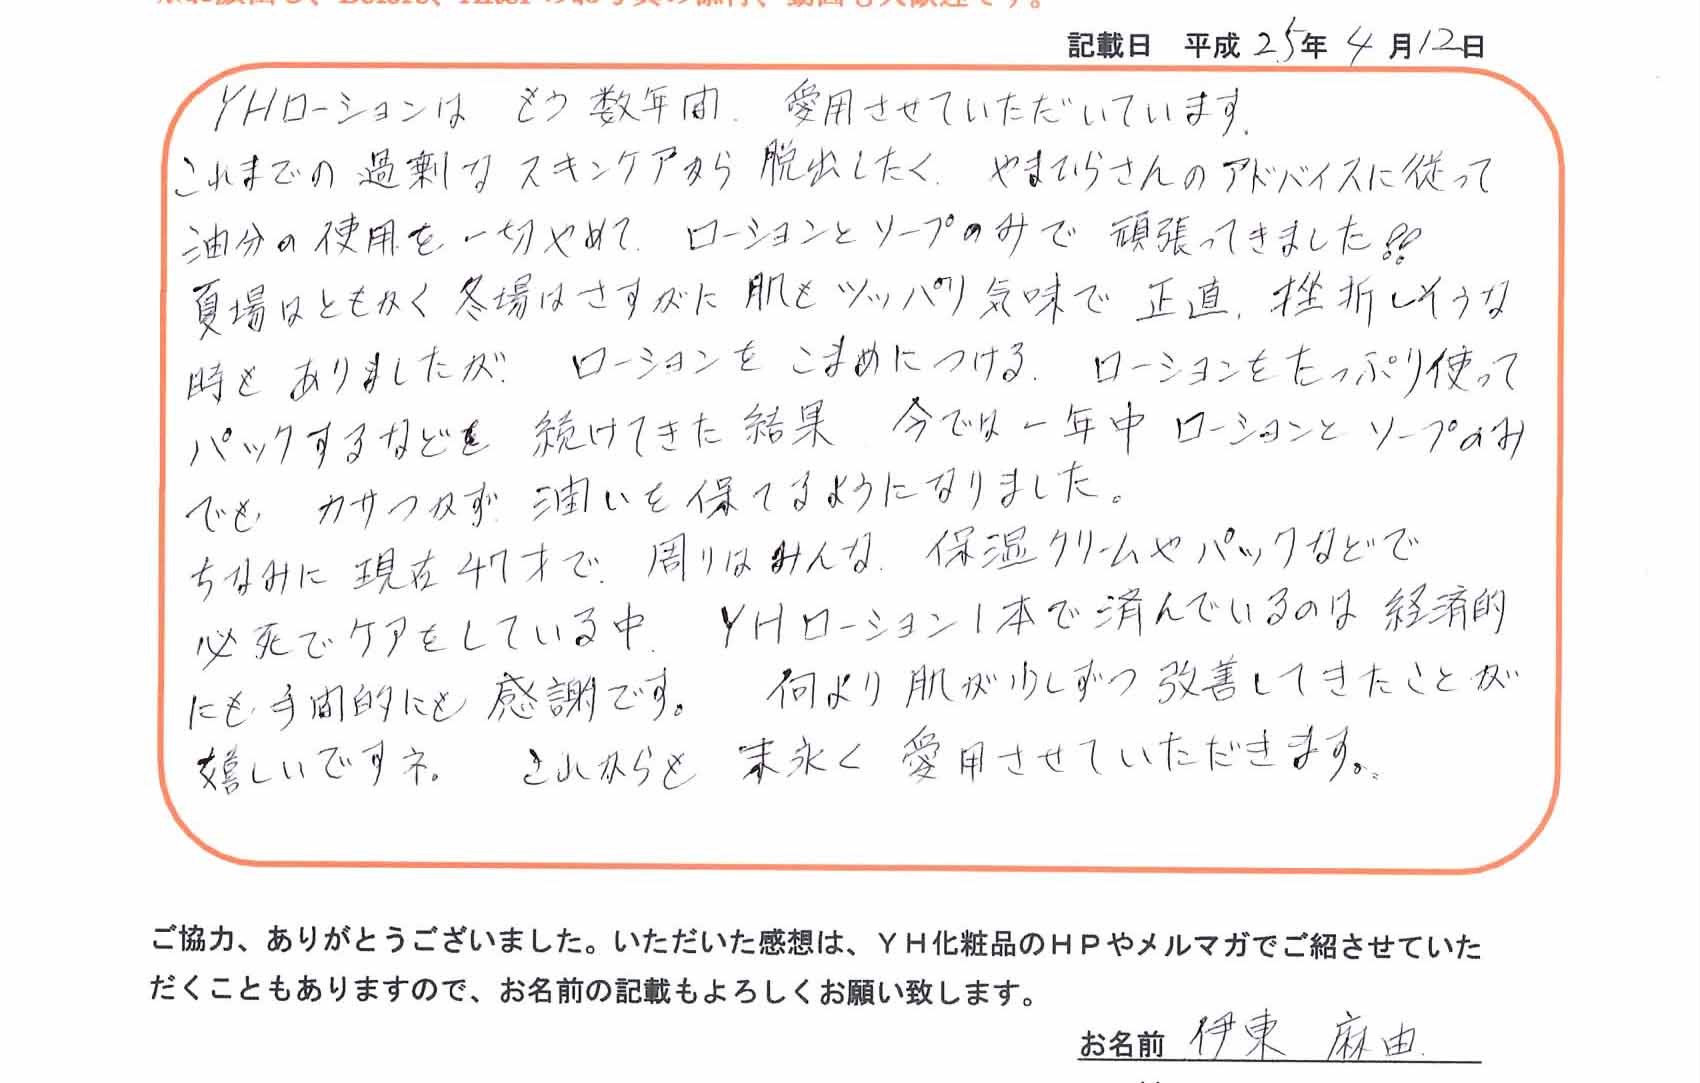 記載日 平成 25年 4月12日
YHローションは もう数年間、愛用させていただいています。
これまでの過剰なスキンケアから脱出したく、やまひらさんのアドバイスに従って
油分の使用を一切やめて、ローションとソープのみで頑張ってきました!!
夏場はともかく冬場はさすがに肌もツッパリ気味で正直、挫折しそうな
時もありましたが、ローションをこまめにつける、ローションをたっぷり使って
パックするなどを続けてきた結果、今では一年中ローションとソープのみ
でも、カサつかず、潤いを保てるようになりました。
ちなみに現在47才で、周りはみんな、保湿クリームやパックなどで
必死でケアをしている中、YHローション1本で済んでいるのは経済的
にも手間的にも感謝です。何より肌が少しずつ改善してきたことが
嬉しいですネ。これからも末永く愛用させていただきます。
ご協力、ありがとうございました。いただいた感想は、YH化粧品のHPやメルマガでご紹させていた
だくこともありますので、お名前の記載もよろしくお願い致します。
お名前 伊東 麻由